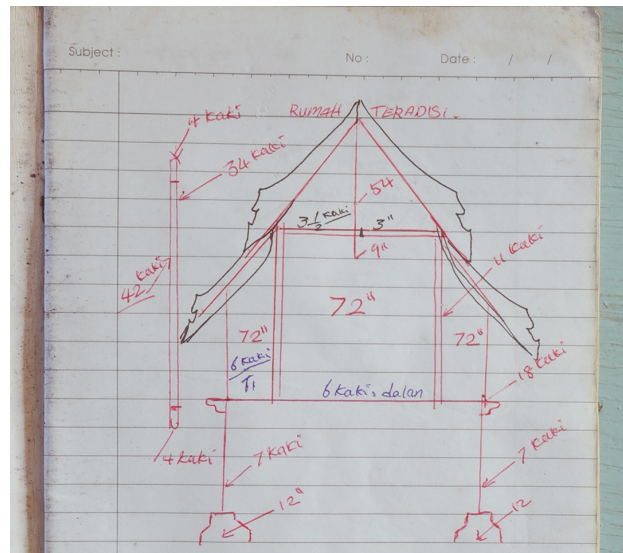 Subject :
No :
Date : / /
RUMAH TERADISI.
4 Kaki
34 Kaki
54
3 1/2 Kaki
3"
9"
42 Kaki
72"
72"
72"
6 Kaki
18 Kaki
6 Kaki, dalan
4 Kaki
7 Kaki
7 Kaki
12"
12